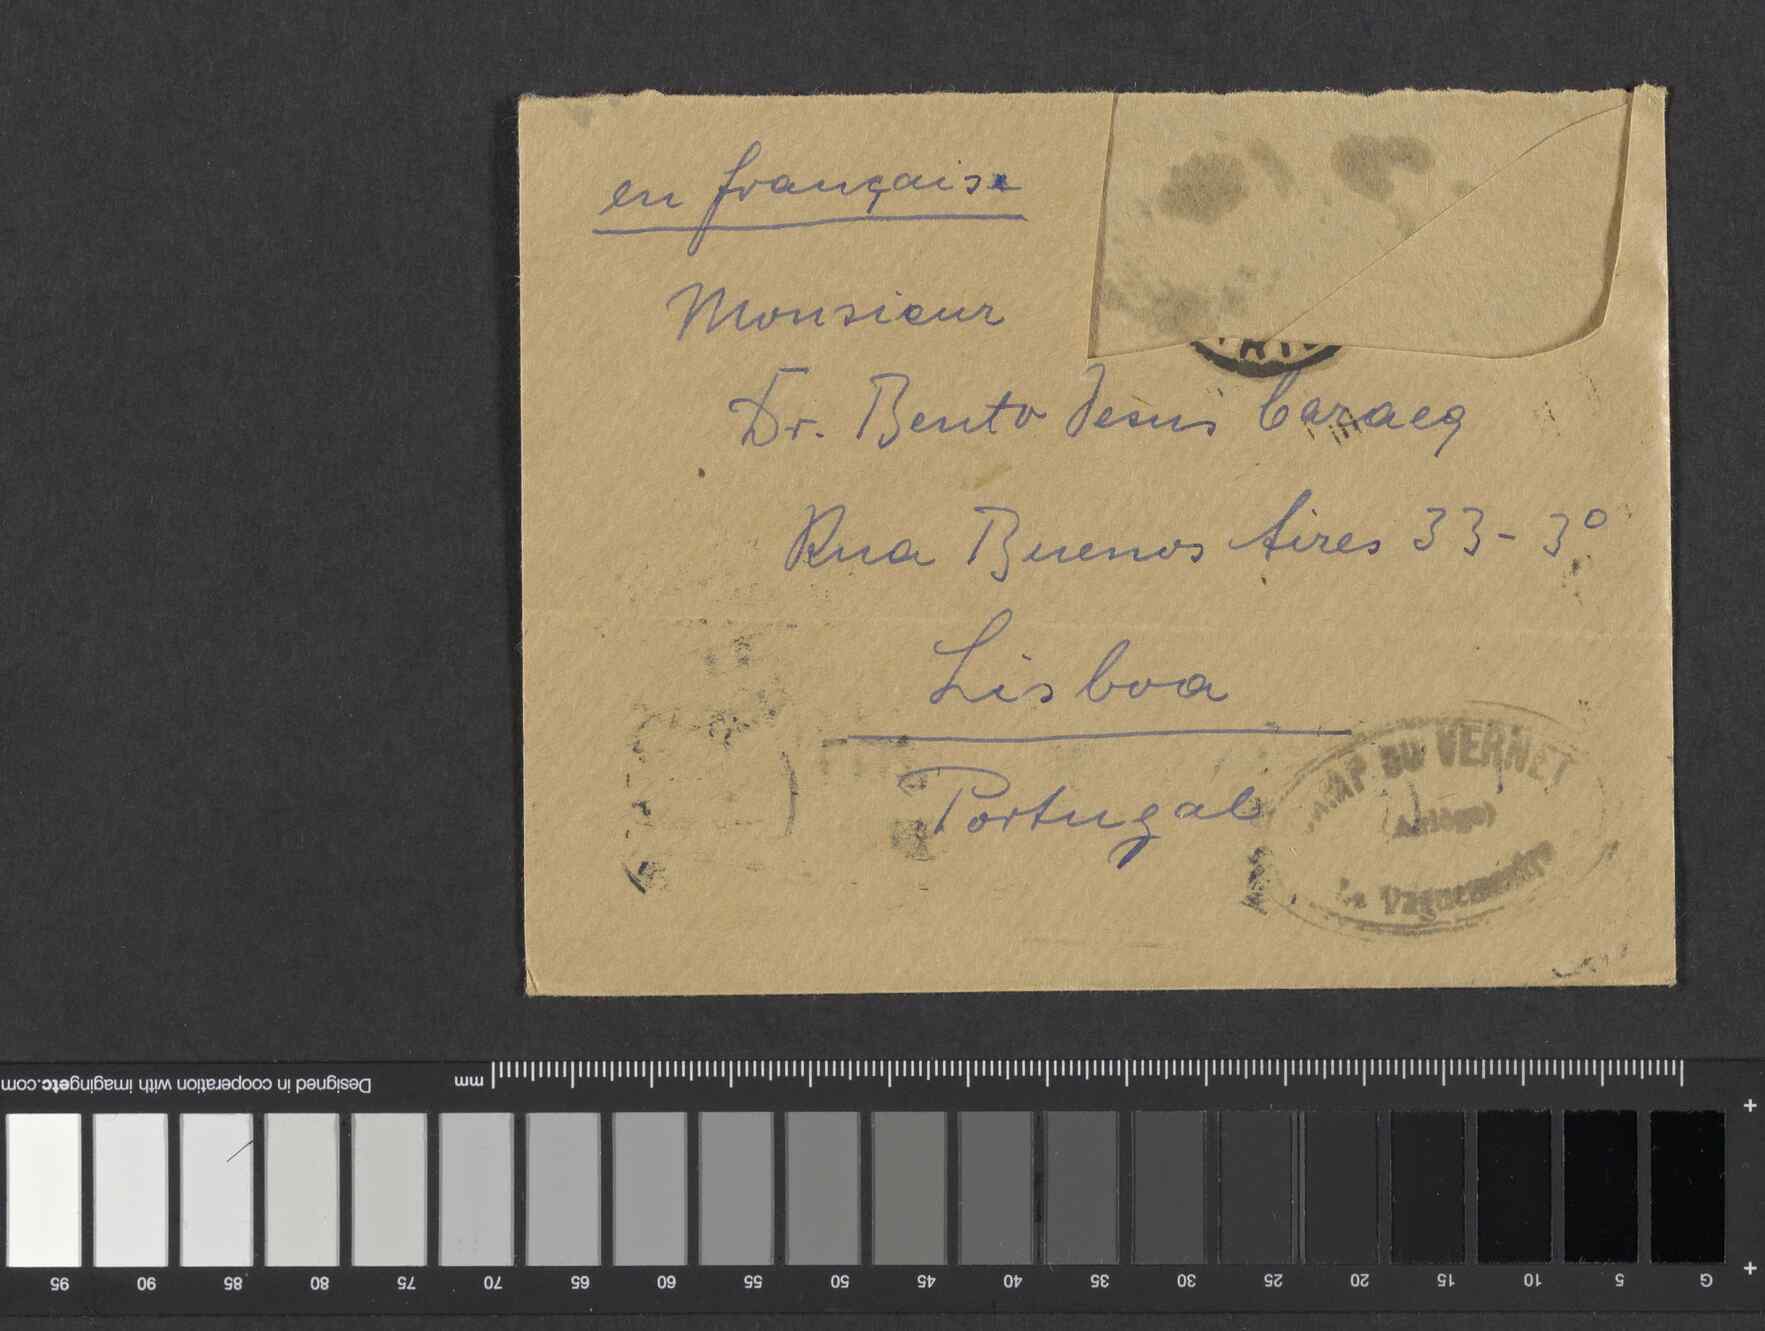 en français
Monsieur
Dr. Bento Jesus Caraeg
Rua Buenos Aires 33-3º
Lisboa
Portugal
CAMP DU VERNET
(Ariège)
Le Vaguemestre
Designed in cooperation with imagingetc.com
mm
95 90 85 80 75 70 65 60 55 50 45 40 35 30 25 20 15 10 5 G